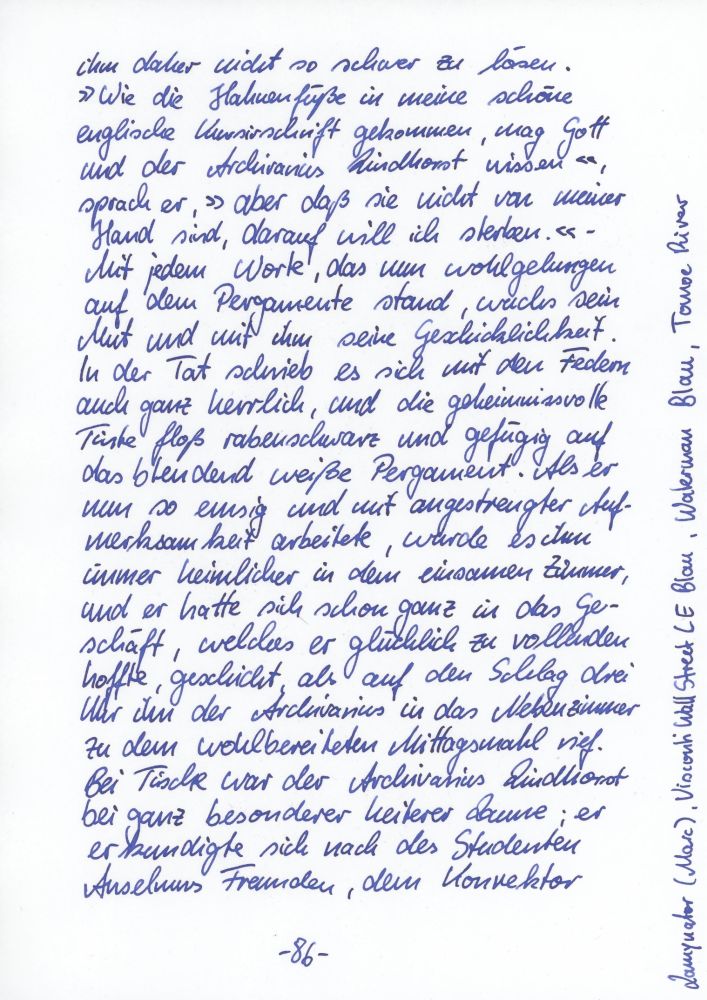 ihm daher nicht so schwer zu lösen.
»Wie die Hahnenfüße in meine schöne
englische Kursivschrift gekommen, mag Gott
und der Archivarius Lindhorst wissen«,
sprach er, »aber daß sie nicht von meiner
Hand sind, darauf will ich sterben.« -
Mit jedem Worte, das nun wohlgelungen
auf dem Pergamente stand, wuchs sein
Mut und mit ihm seine Geschicklichkeit.
In der Tat schrieb es sich mit den Federn
auch ganz herrlich, und die geheimnisvolle
Tinte floß rabenschwarz und gefügig auf
das blendend weiße Pergament. Als er
nun so emsig und mit angestrengter Auf-
merksamkeit arbeitete, wurde es ihm
immer heimlicher in dem einsamen Zimmer,
und er hatte sich schon ganz in das Ge-
schäft, welches er glücklich zu vollenden
hoffte, geschickt, als auf den Schlag drei
Uhr ihn der Archivarius in das Nebenzimmer
zu dem wohlbereiteten Mittagsmahl rief.
Bei Tische war der Archivarius Lindhorst
bei ganz besonderer heiterer Laune; er
erkundigte sich nach des Studenten
Anselmus Freunden, dem Konrektor
-86-
Lamynator (Marc), Visconti Wall Street LE Blau, Waterman Blau, Tomoe River